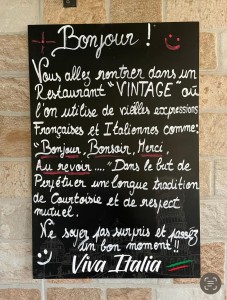 Bonjour !
Vous allez rentrer dans un
Restaurant "VINTAGE" où
l'on utilise de vieilles expressions
Françaises et Italiennes comme:
"Bonjour, Bonsoir, Merci,
Au revoir...." Dans le but de
Perpétuer une longue tradition
de Courtoisie et de respect
mutuel.
Ne soyez pas surpris et passez
un bon moment !!
Viva Italia